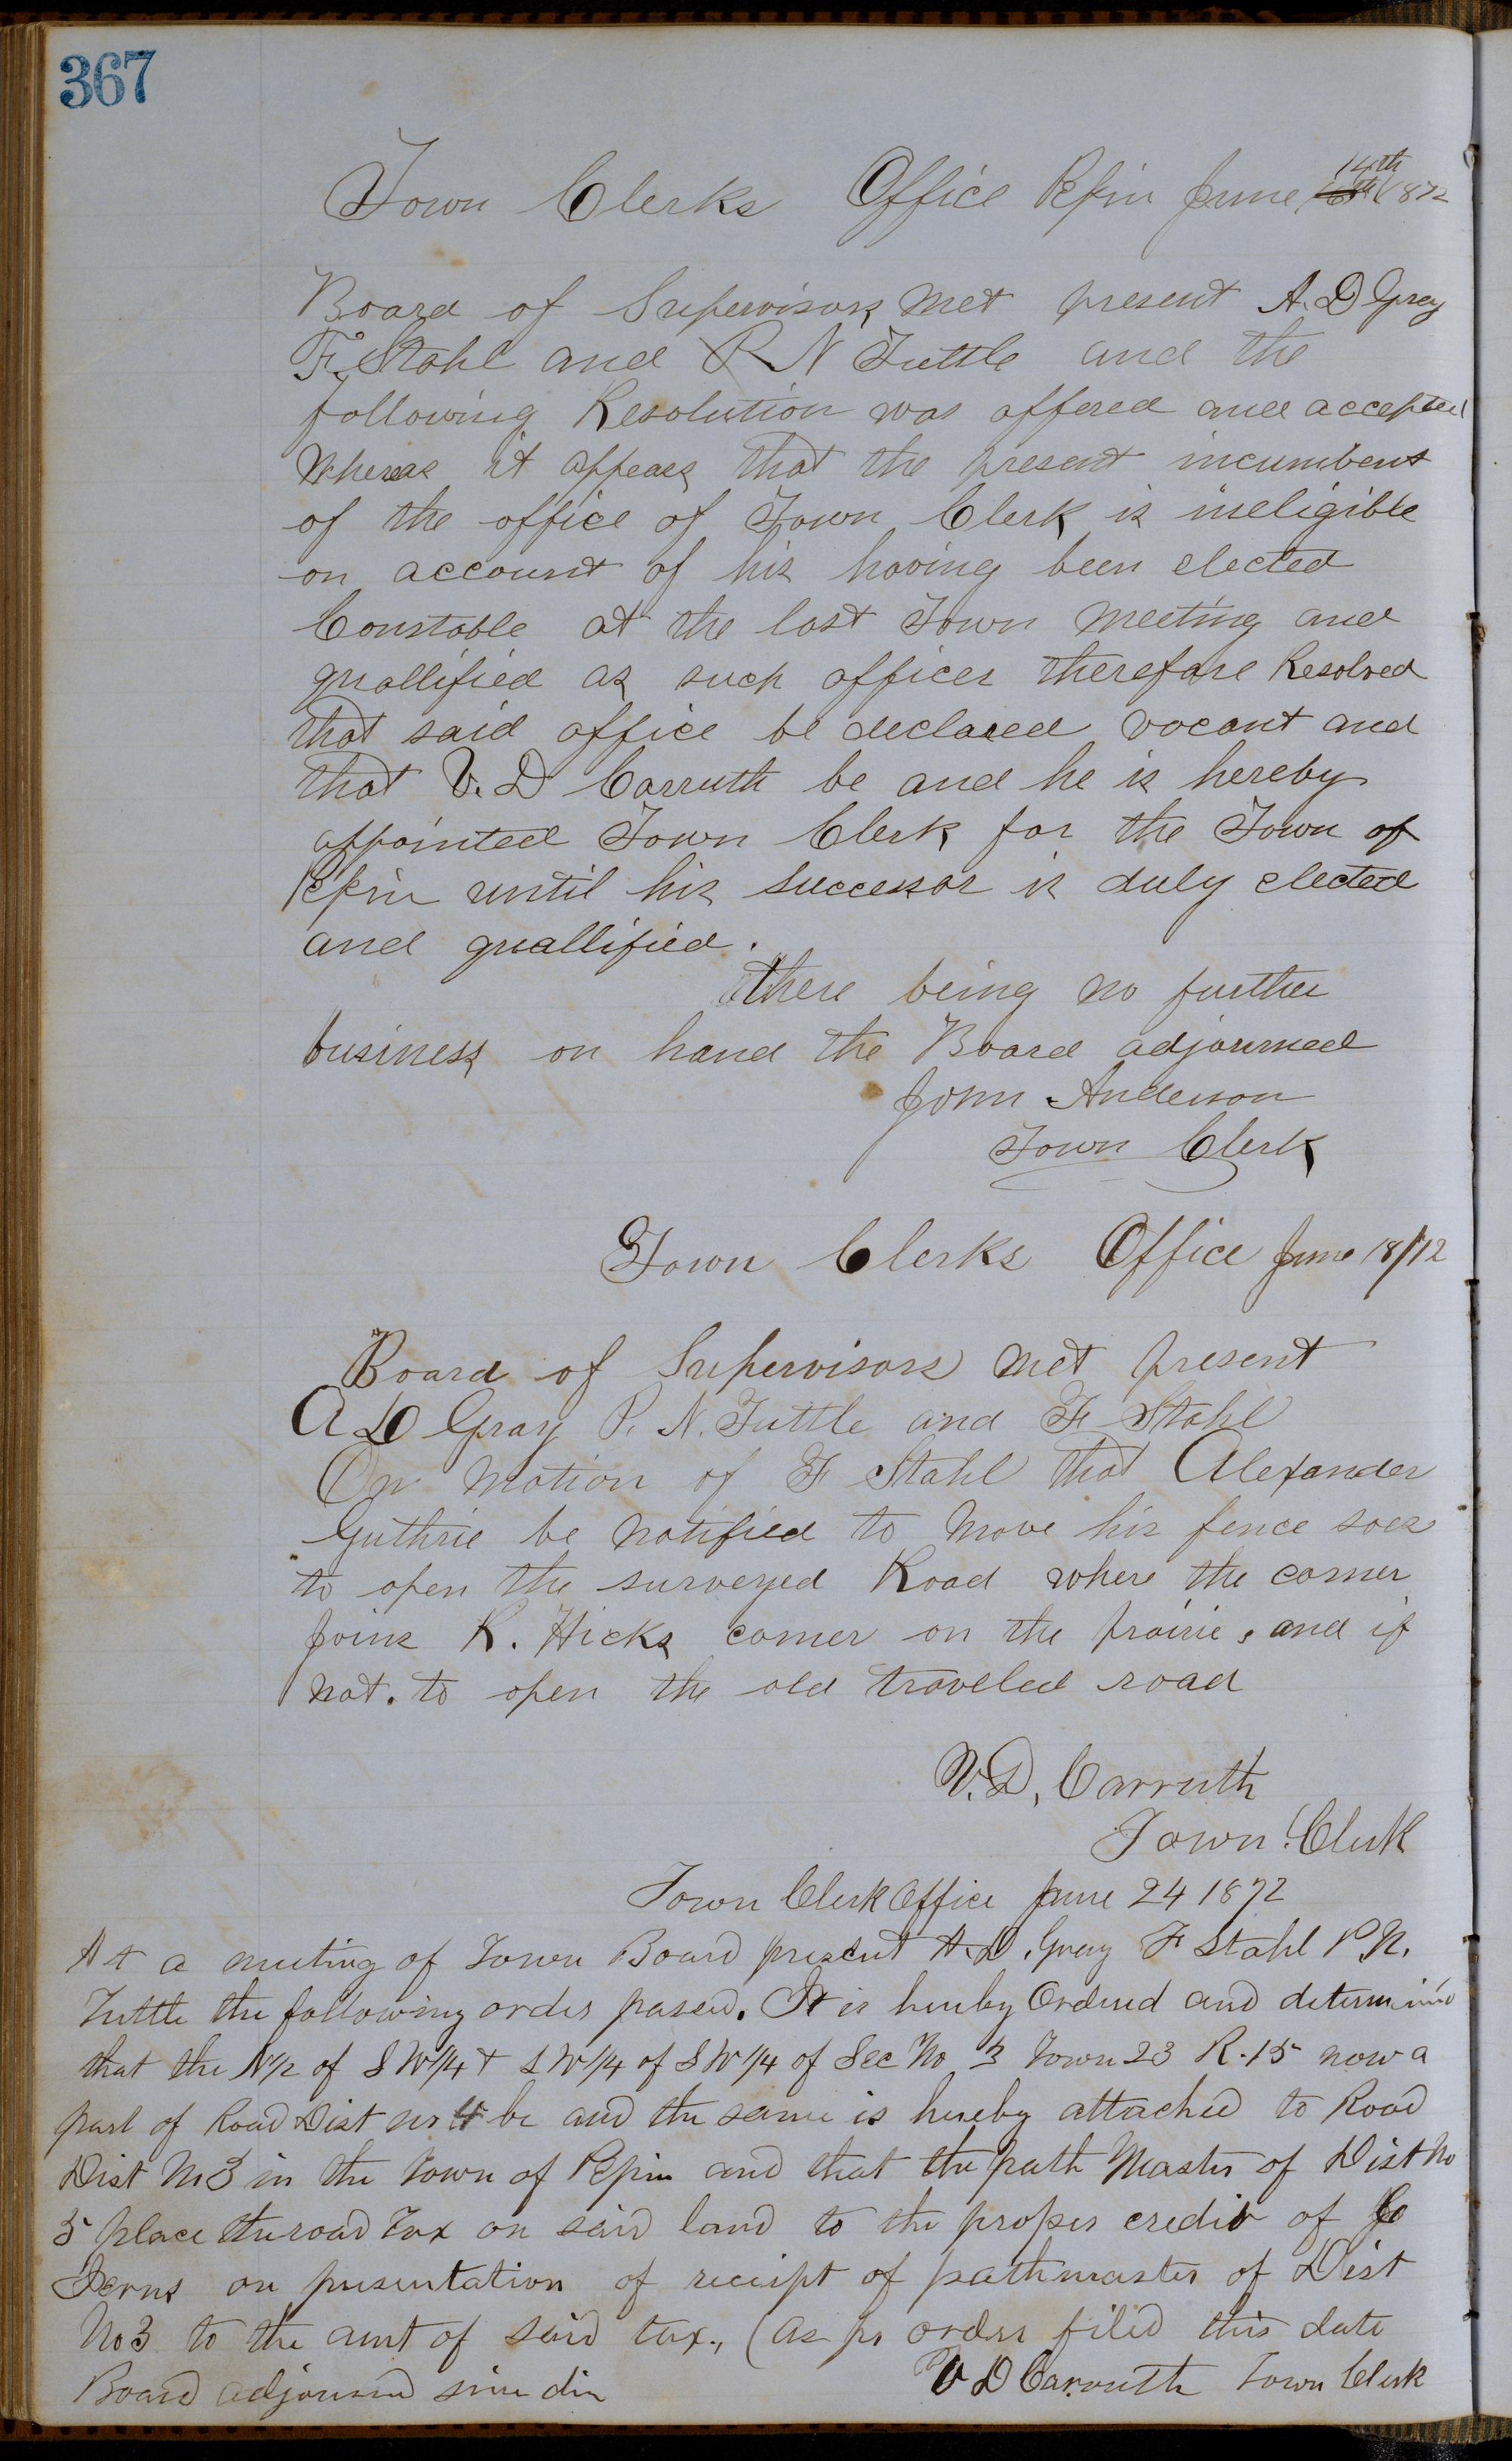 367
Town Clerks Office Pepin June 14th 1872
Board of Supervisors met present A. D Gray
F. Stahl and P N Tuttle and the
following Resolution was offered and accepted
Whereas it appears that the present incumbent
of the office of Town Clerk is ineligible
on account of his having been elected
Constable at the last Town meeting and
quallified as such officer therefore Resolved
that said office be declared vacant and
that V. D Carruth be and he is hereby
appointed Town Clerk for the Town of
Pepin until his successor is duly elected
and quallified.
there being no further
business on hand the Board adjourned
John Anderson
Town Clerk
Town Clerks Office June 18/72
Board of Supervisors met present
A D Gray P. N. Tuttle and F Stahl
On motion of F Stahl that Alexander
Guthrie be notified to move his fence soas
to open the surveyed Road where the corner
joins R. Hicks corner on the prairie, and if
not. to open the old traveled road
V. D, Carruth
Town Clerk
Town Clerk Office June 24 1872
At a meeting of Town Board present A. D. Gray F Stahl P N.
Tuttle the following order passed. It is hereby Ordered and determined
that the N 1/2 of S W 1/4 & S W 1/4 of S W 1/4 of Sec No 3 Town 23 R. 15 now a
part of Road Dist no be and the same is hereby attached to Road
Dist No 3 in the Town of Pepin and that the path Master of Dist No
5 place the road Tax on said land to the proper credit of
on presentation of receipt of pathmaster of Dist
No 3 to the amt of said tax., (as pr order filed this date
Board adjourned sine die V D Carruth Town Clerk